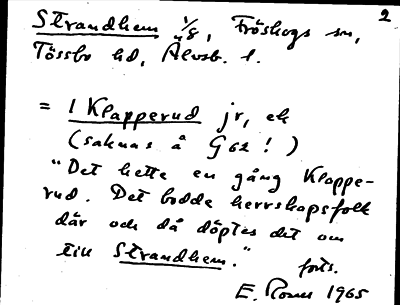 2
Strandhem 1/8, Fröskogs sn,
Tössbo hd, Älvsb. l.
= 1 Klapperud jr, ek
(saknas å G62!)
"Det hette en gång Klappe-
rud. Det bodde herrskapsfolk
där och då döptes det om
till Strandhem."
forts.
E. 1965